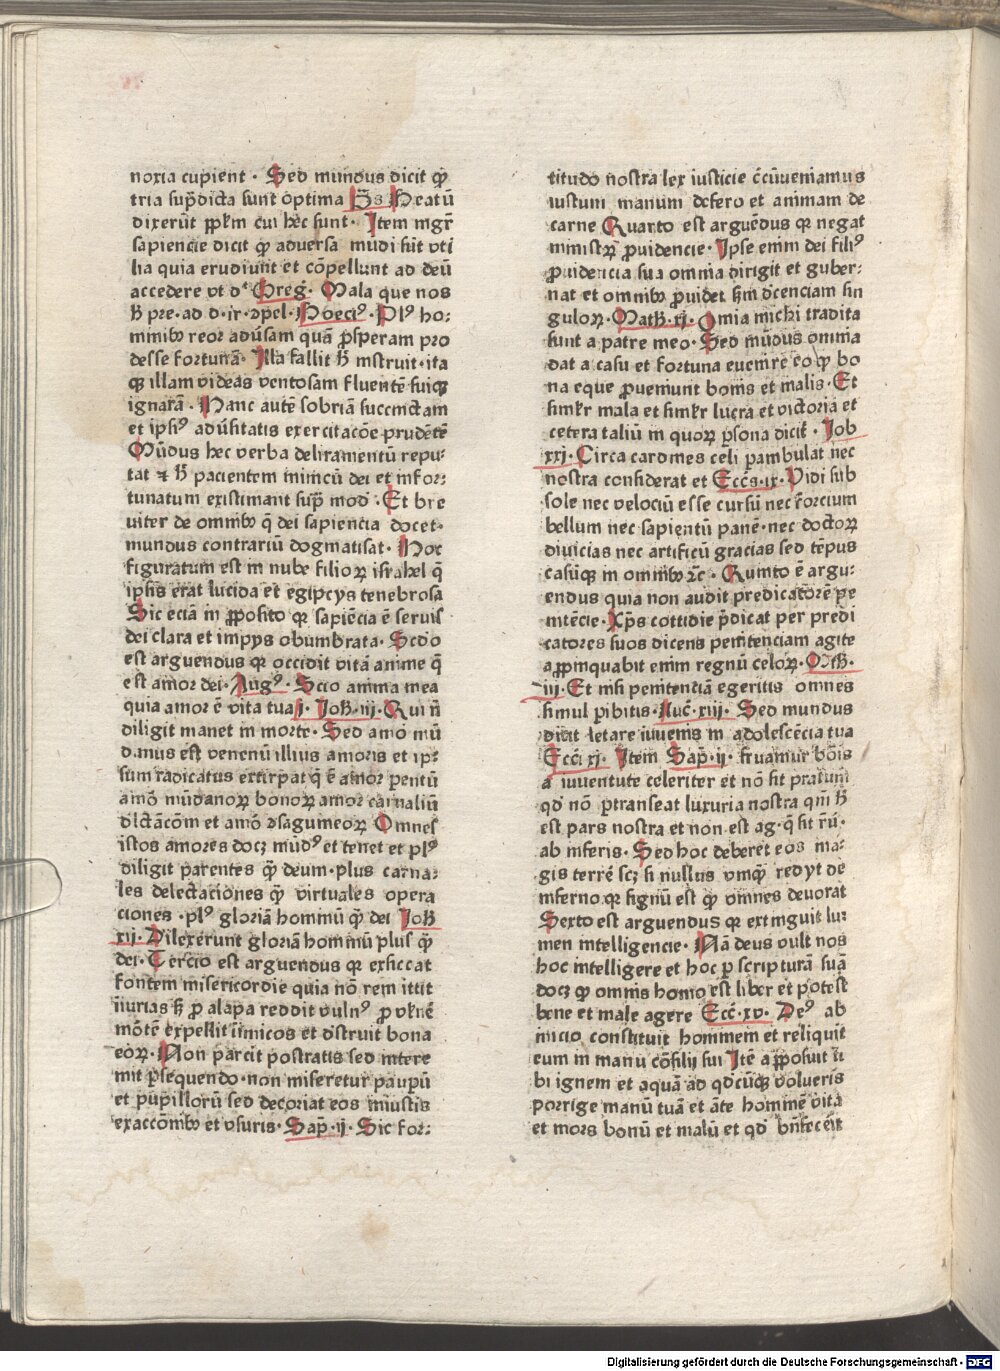 noxia cupient · Sed mundus dicit ꝙ
tria sup̄dicta sunt optima Ps Beatū
dixerūt pp̄lm cui hec sunt · Item mgr̄
sapiencie dicit ꝙ aduersa mūdi sūt vti
lia quia erudiunt et cōpellunt ad deū
accedere vt d Greḡ · Mala que nos
h̄ pre · ad d · ir · ꝯpel · Boeciꝰ · Plꝰ ho:
minibꝯ reor adūsam quā ꝓsperam pro
desse fortunā · Illa fallit h̄ instruit · ita
ꝙ illam videas ventosam fluentē suiqꝫ
ignarā · Hanc autē sobriā succinctam
et ipsiꝰ adūsitatis exercitacōe prudētē
Mūdus hec verba deliramentū repu⸗
tat ⁊ h̄ pacientem inimicū dei et infor:
tunatum existimant suꝑ mod̄ · Et bre
uiter de omnibꝯ q̄ dei sapiencia docet·
mundus contrariū dogmatisat · Hoc
figuratum est in nube filioꝝ israhel q̄
ipsis erat lucida et egipcys tenebrosa
Sic eciā in ꝓposito ꝙ sapiēcia ē seruis
dei clara et impys obumbrata · Scd̄o
est arguendus ꝙ occidit vitā anime q̄
est amor dei · Augꝰ · Scio anima mea
quia amor ē vita tua i · Joh̄ · iij · Qui n̄
diligit manet in morte · Sed amo mū
d.anus est venenū illius amoris et ip⸗
sum radicatus extirpat q̄ ē amor pentū
amō mūdanoꝝ bonoꝝ amor carnaliū
dl̄ctācōm et amō ꝯsagumeoꝝ Omnes
istos amores docꝫ mūdꝰ et tenet et plꝰ
diligit parentes ꝙ̄ deum · plus carna⸗
les delectaciones ꝙ̄ virtuales opera
ciones · plꝰ gloriā hominū ꝙ̄ dei Joh̄
xij · Dilexerunt gloriā hominū plus ꝙ̄
dei · Tercio est arguendus ꝙ exsiccat
fontem misericordie quia nō rem ittit
iiurias h̄ ꝓ alapa reddit vulnꝰ ꝓ vlnē
mōtē expellit iīmicos et dstruit bona
eoꝝ · Non parcit postratis sed intere
mit ꝑsequendo · non miseretur paupū
et pupillorū sed decoriat eos iniustis
exaccōnibꝯ et vsuris · Sap̄ · ij · Sic for:
titudo nostra lex iusticie c̄cūueniamus
iustum manum defero et animam de
carne Quarto est arguēdus ꝙ negat
ministrꝝ ꝓuidencie · Ipse enim dei filiꝰ
ꝓuidencia sua omnia dirigit et guber⸗
nat et omnibꝯ ꝓuidet s̄m dc̄enciam sin
guloꝝ · Math̄ · xj · Omīa michi tradita
sunt a patre meo · Sed mūdus omnia
dat a casu et fortuna euenire eo ꝙ bo
na eque ꝓueniunt bonis et malis · Et
silr̄ mala et silr̄ lucra et victoria et
cetera taliū in quoꝝ ꝑsona dicit̄ · Job
xxj · Circa cardines celi ꝑambulat nec
nostra considerat et Ecc̄s · ix · Vidi sub
sole nec velociū esse cursū nec forcium
bellum nec sapientū panē · nec doctoꝝ
diuicias nec artificū gracias sed tēpus
casūqꝫ in omnibꝯ ⁊c̄ · Quinto ē argu⸗
endus quia non audit predicatōrē pe
nitēcie · Xp̄s cottidie p̄dicat per predi
catores suos dicens penitenciam agite
appinquabit enim regnū celoꝝ · Mth̄ ·
iij · Et nisi penitenciā egeritis omnes
simul ꝑibitis · Luc̄ · xiij · Sed mundus
dicit letare iuuenis in adolescēcia tua
Ecc̄i xj · Item Sap̄ · ij · fruamur bōis
a iuuentute celeriter et nō sit pratum
qd̄ nō ꝑtranseat luxuria nostra qm̄ h̄
est pars nostra et non est ag · q̄ sit rū ·
ab inferis · Sed hoc deberet eos ma⸗
gis terrē scꝫ si nullus vnqꝫ̄ redyt de
inferno ꝙ signū est ꝙ omnes deuorat
Sexto est arguendus ꝙ extinguit lu⸗
men intelligencie · Nā deus vult nos
hoc intelligere et hoc ꝑ scripturā suā
docꝫ ꝙ omnis homo est liber et potest
bene et male agere Ecc̄ · xv · Deꝰ ab
inicio constituit hominem et reliquit
eum in manu cōsilij sui Itē apposuit ti
bi ignem et aquā ad qd̄cūqꝫ volueris
porrige manū tuā et āte hominē vita
et mors bonū et malū et qd̄ bn̄fecēit